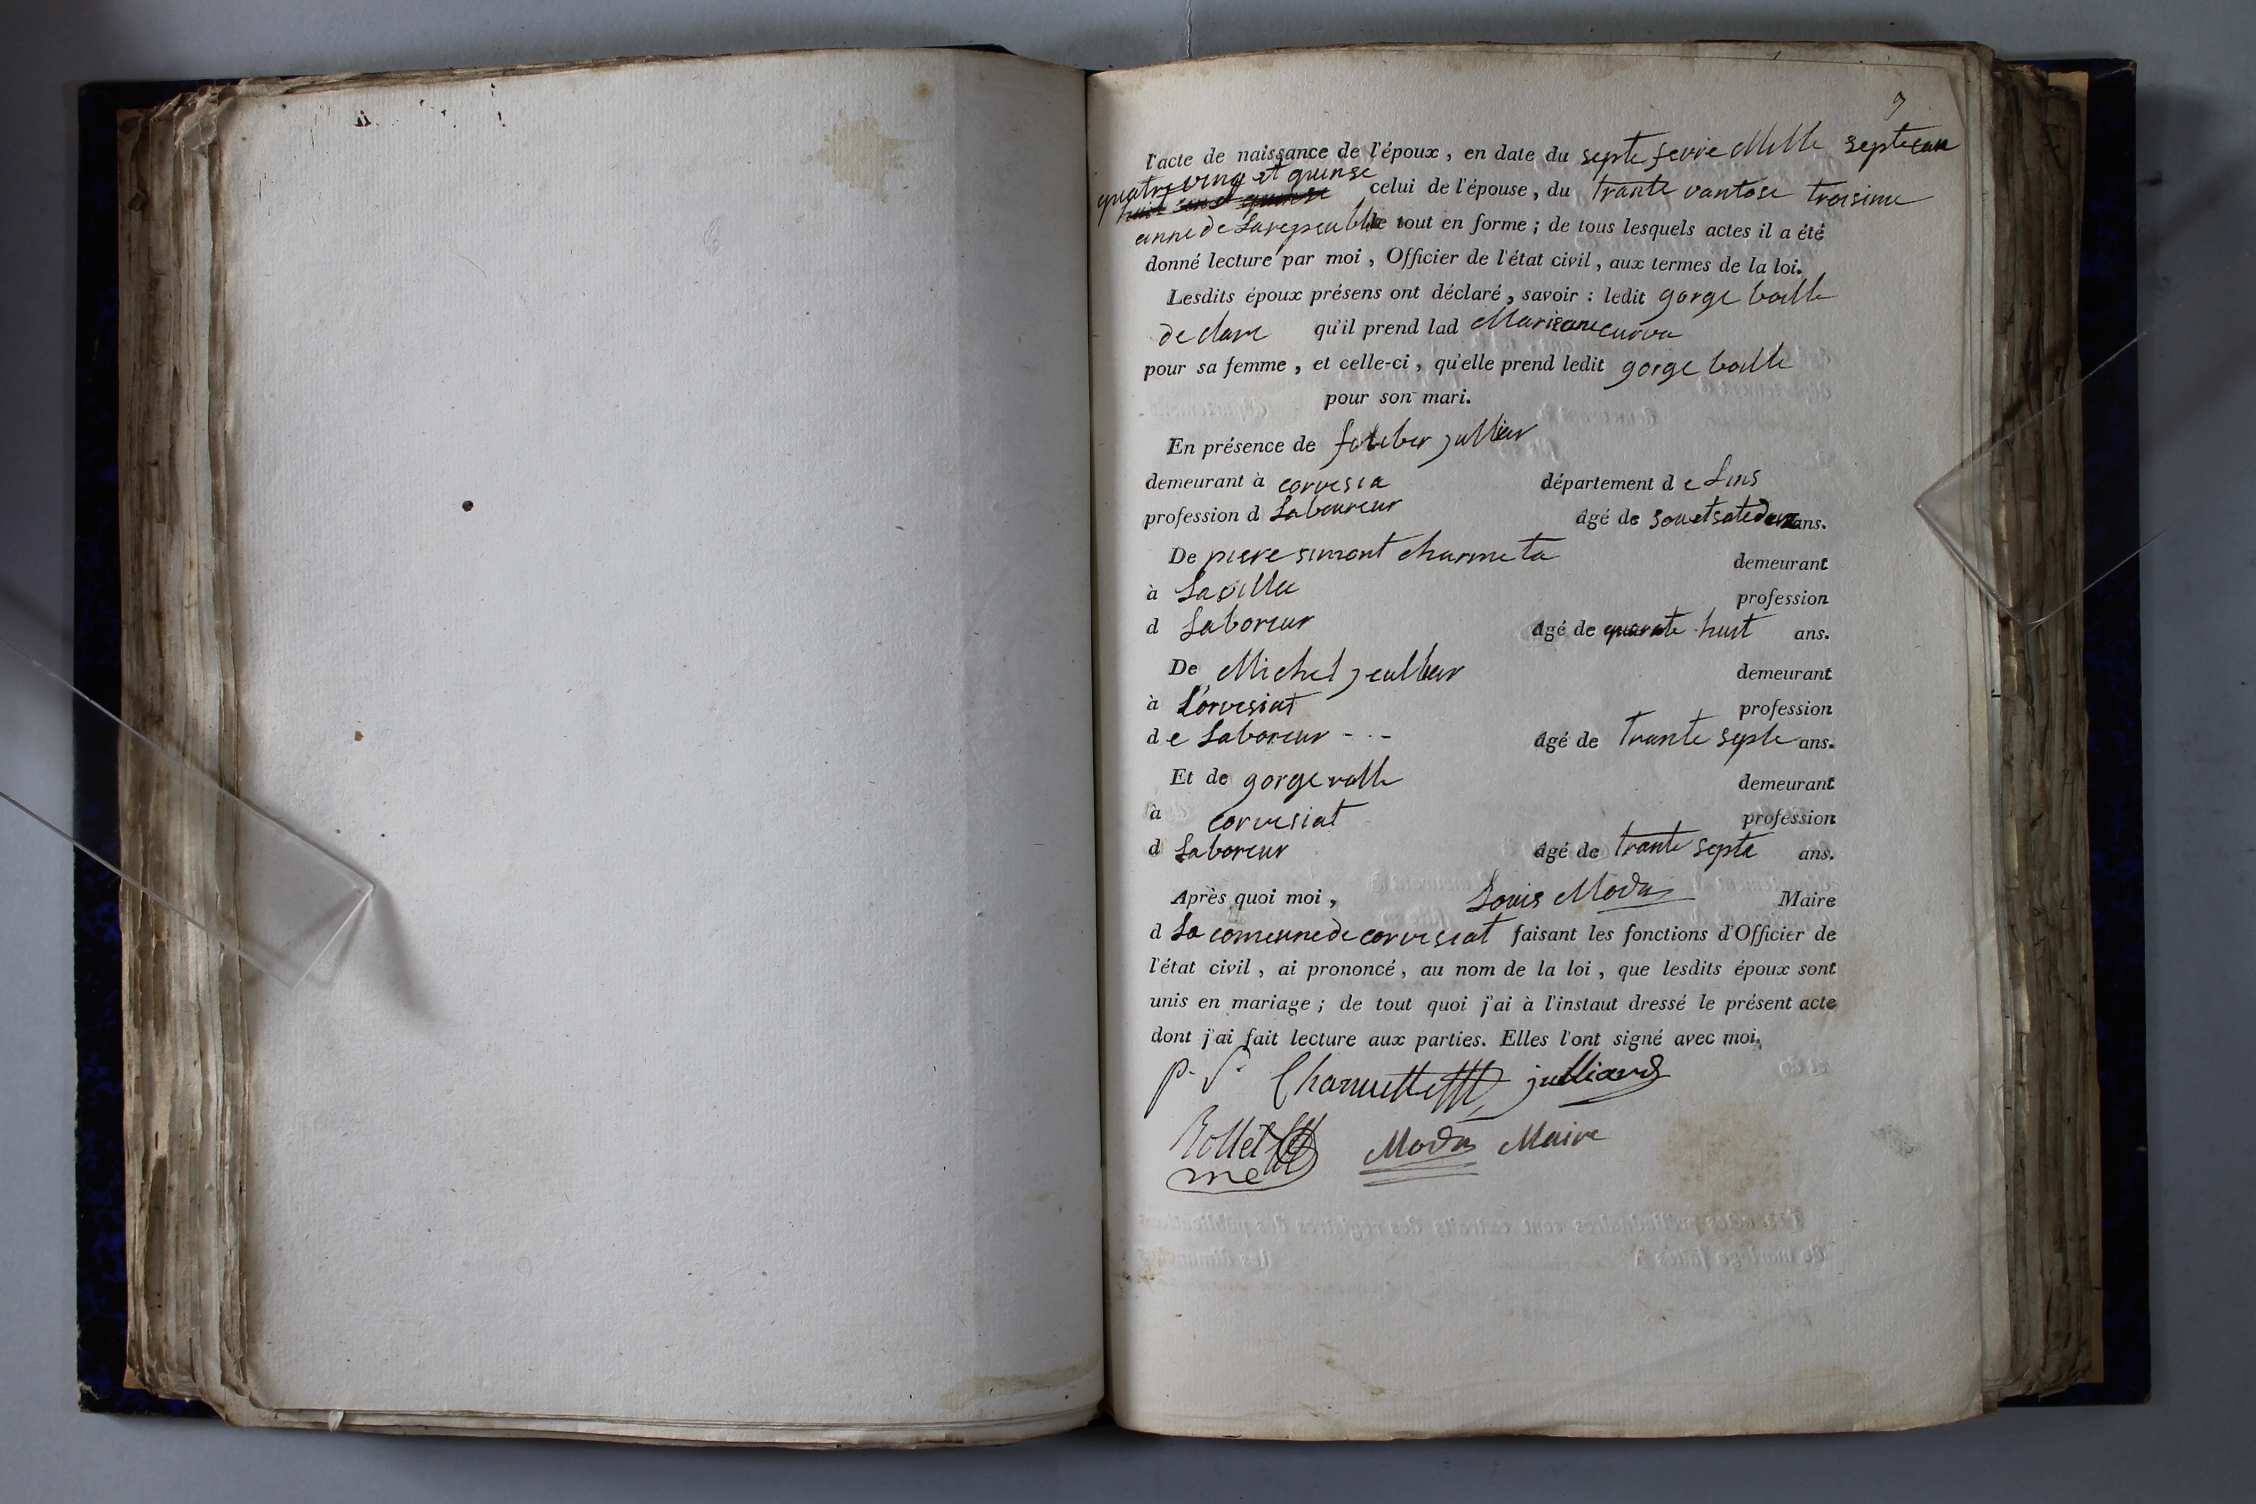 9
l'acte de naissance de l'époux, en date du septe fevrie Mille septe can
quatre ving et quinse
celui de l'épouse, du trante vantose troisime
anne de La repeublike le tout en forme; de tous lesquels actes il a été
donné lecture par moi, Officier de l'état civil, aux termes de la loi.
Lesdits époux présens ont déclaré, savoir : ledit gorge volle
declare qu'il prend lad Marieane
pour sa femme, et celle-ci, qu'elle prend ledit gorge volle
pour son mari.
En présence de jullier
demeurant à corvesia département de Lins
profession d Laboureur âgé de ans.
De piere simont charmeta demeurant
à Lavilla profession
d Laboreur âgé de quarate huit ans.
De Michel demeurant
à Corvesiat profession
de Laboreur - - - âgé de trante septe ans.
Et de gorge volle demeurant
à corvesiat profession
d Laboreur âgé de trante septe ans.
Après quoi moi, Louis Modas Maire
d La comeune de corvesiat faisant les fonctions d'Officier de
l'état civil, ai prononcé, au nom de la loi, que lesdits époux sont
unis en mariage; de tout quoi j'ai à l'instaut dressé le présent acte
dont j'ai fait lecture aux parties. Elles l'ont signé avec moi.
p. S. julliard
Modas Maire